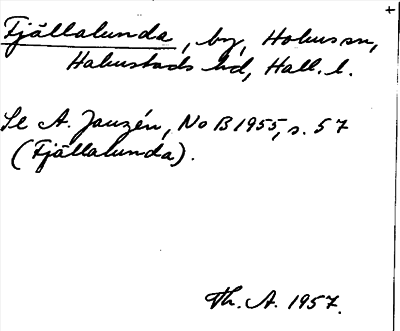 +
Fjällalunda, by, Holms sn,
Halmstads hd, Hall. l.
Se A. Janzén, NoB 1955, s. 57
(Fjällalunda).
Th. A. 1957.